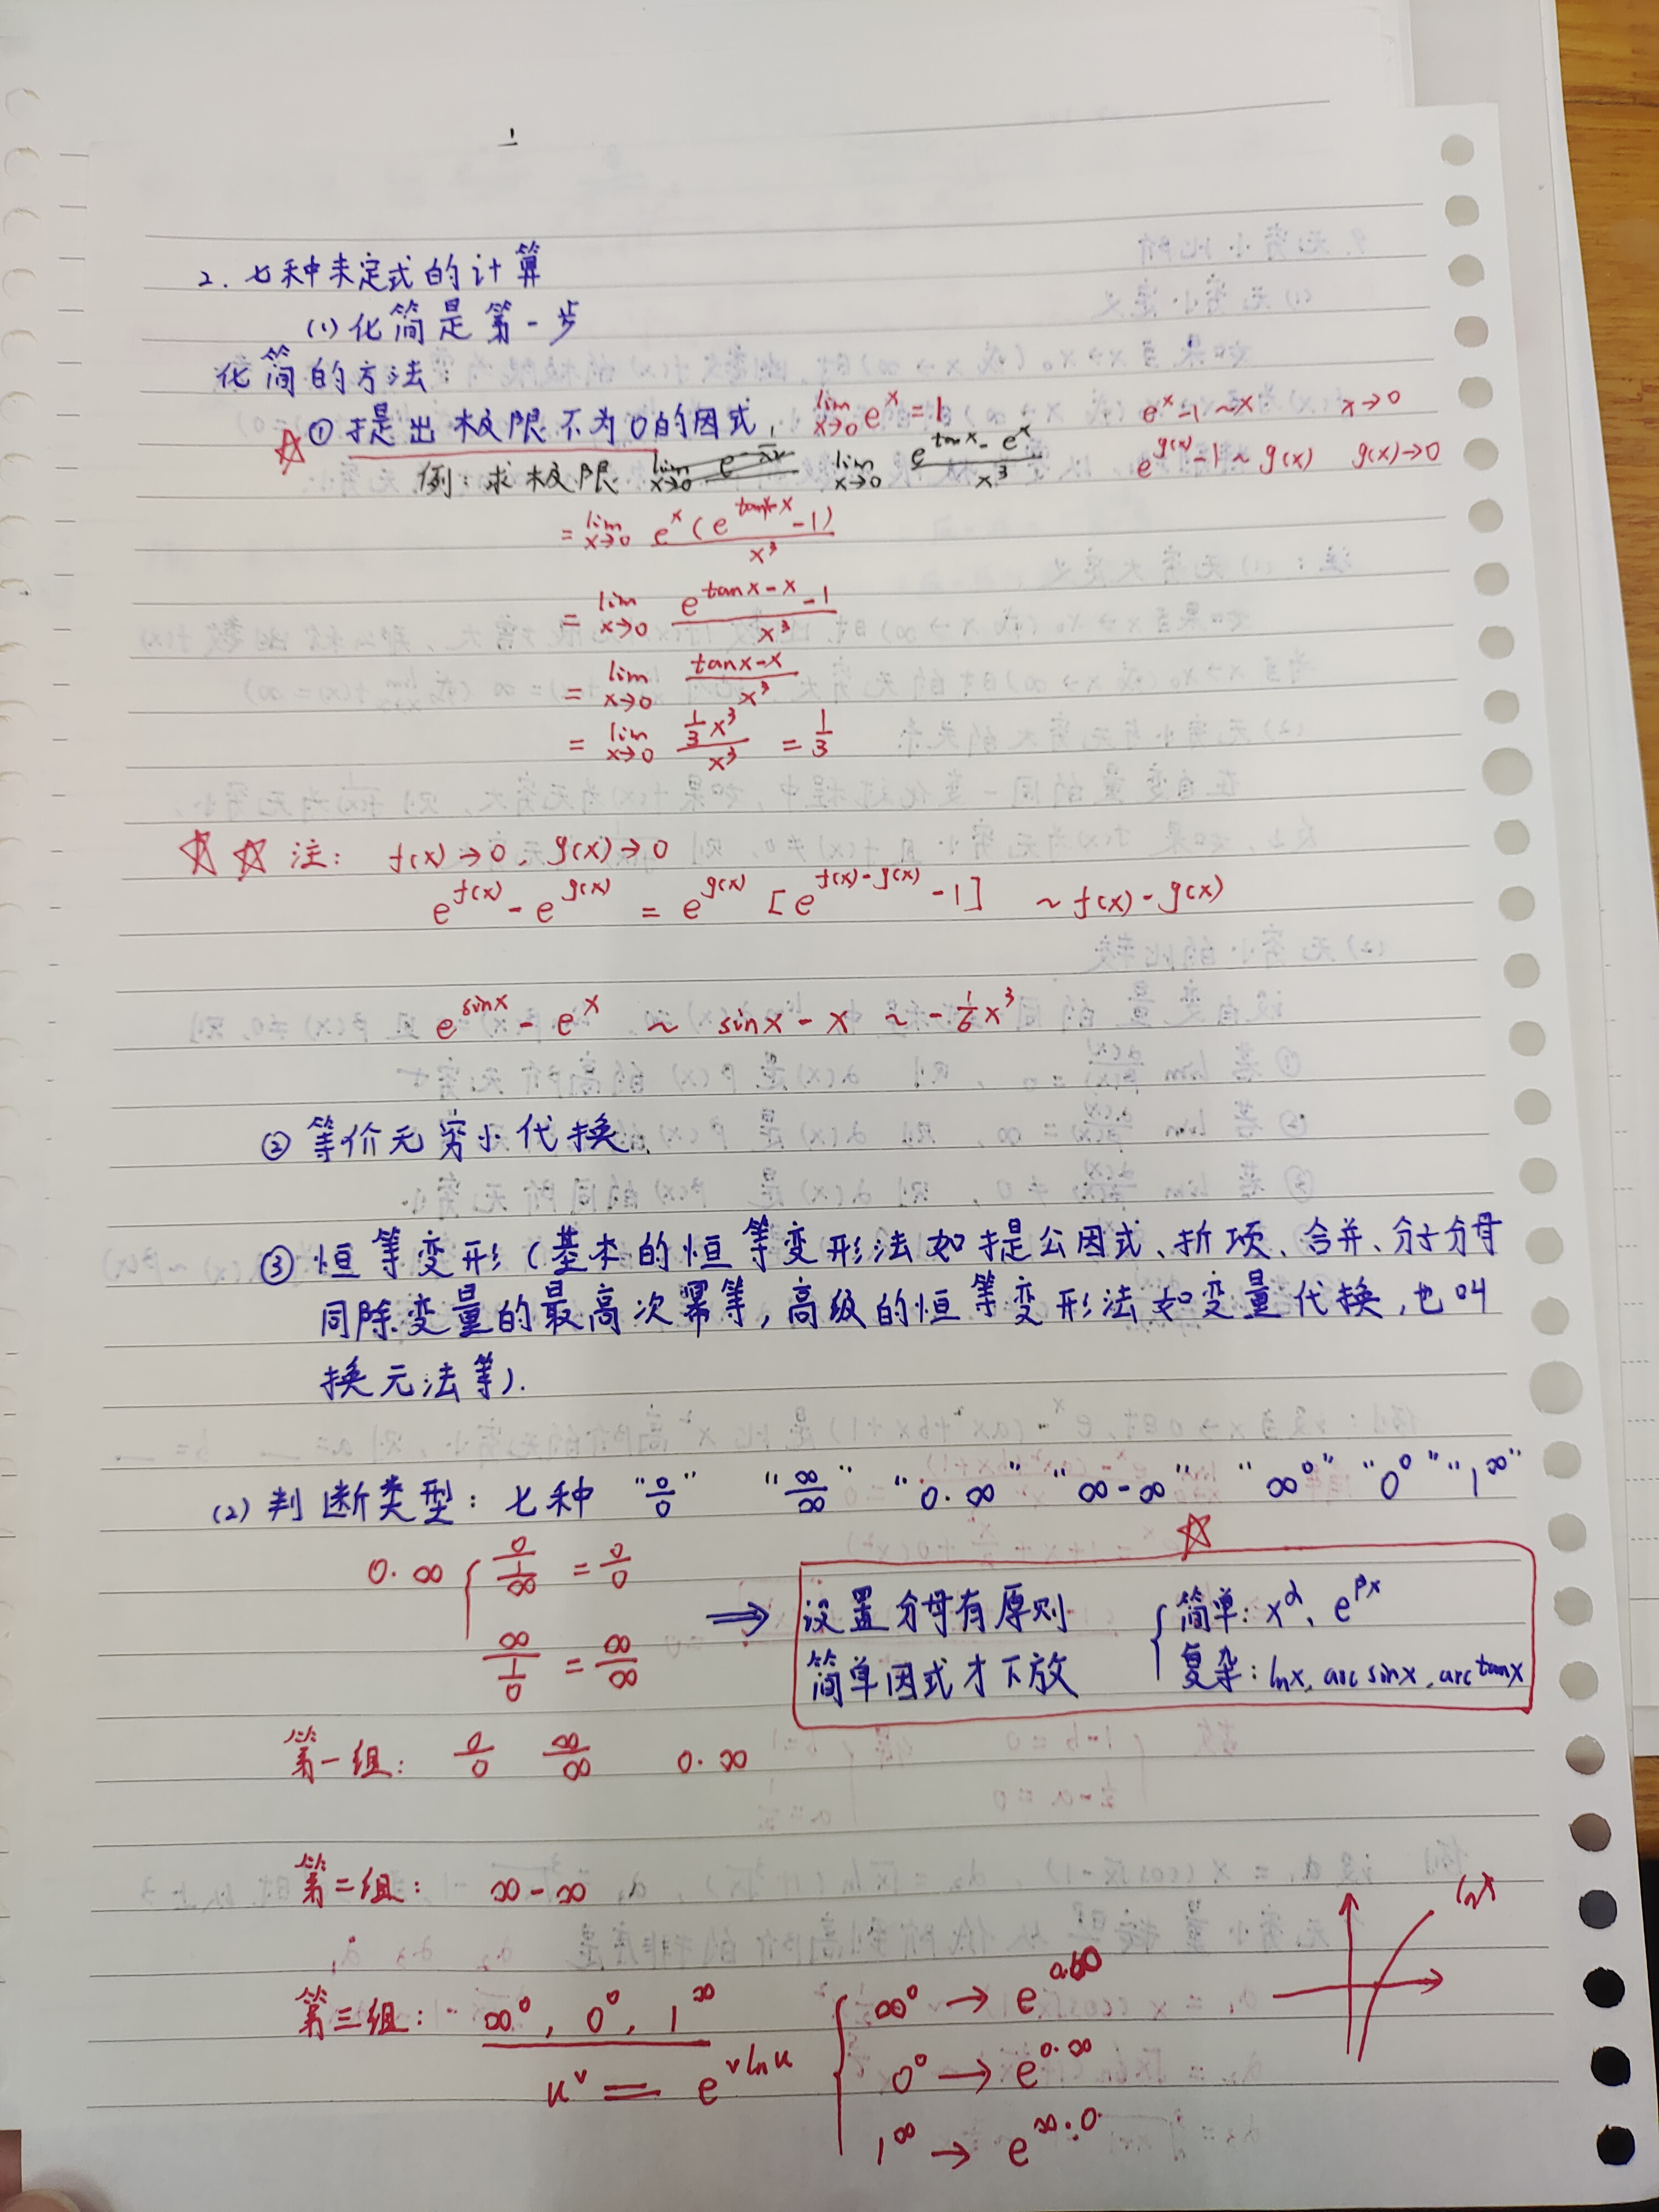 2. 七种未定式的计算
(1) 化简是第一步
化简的方法:
① 提出极限不为0的因式, lim x→0 e^x = 1 e^x-1 ~ x x→0
例: 求极限 lim x→0 (e^tanx - e^x)/x^3 e^g(x)-1 ~ g(x) g(x)→0
= lim x→0 e^x(e^(tanx-x)-1)/x^3
= lim x→0 (e^(tanx-x)-1)/x^3
= lim x→0 (tanx-x)/x^3
= lim x→0 (1/3 x^3)/x^3 = 1/3
☆☆ 注: f(x)→0、g(x)→0
e^f(x) - e^g(x) = e^g(x) [e^(f(x)-g(x)) -1] ~ f(x)-g(x)
e^sinx - e^x ~ sinx - x ~ -1/6 x^3
② 等价无穷小代换.
③ 恒等变形(基本的恒等变形法如提公因式、折项、合并、分子分母
同除变量的最高次幂等,高级的恒等变形法如变量代换,也叫
换元法等).
(2) 判断类型: 七种 "0/0" "∞/∞" "0·∞" "∞-∞" "∞^0" "0^0" "1^∞"
0·∞ { 0/(1/∞) = 0/0
∞/(1/0) = ∞/∞
⇒ 设置分母有原则 { 简单: x^α、e^βx
简单因式才下放 复杂: lnx, arcsinx, arctanx
第一组: 0/0 ∞/∞ 0·∞
第二组: ∞-∞
lnx
第三组: ∞^0, 0^0, 1^∞ { ∞^0 → e
u^v = e^(vlnu) 0^0 → e^(0·∞)
1^∞ → e^(∞·0)